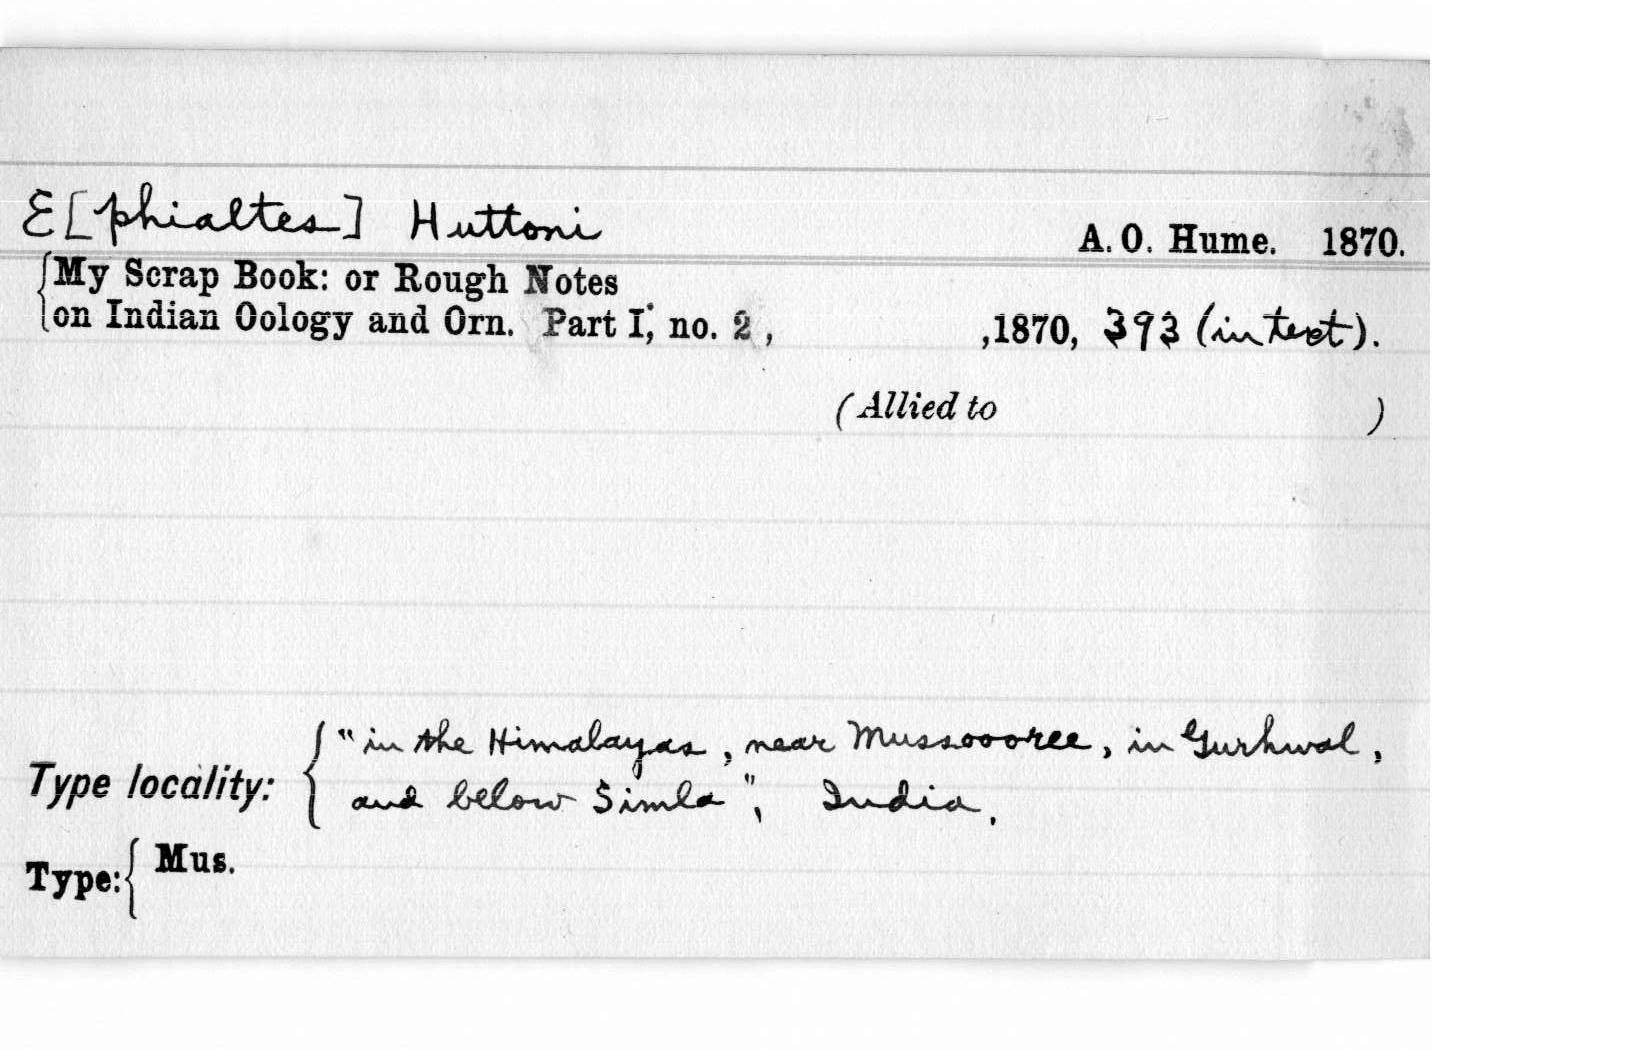 E[phialtes] Huttoni A. O. Hume. 1870.
My Scrap Book: or Rough Notes
on Indian Oology and Orn. Part I, no. 2, ,1870, 393 (in text).
(Allied to )
Type locality: "in the Himalayas, near Mussoooree, in Gurhwal,
and below Simla", India.
Type: Mus.